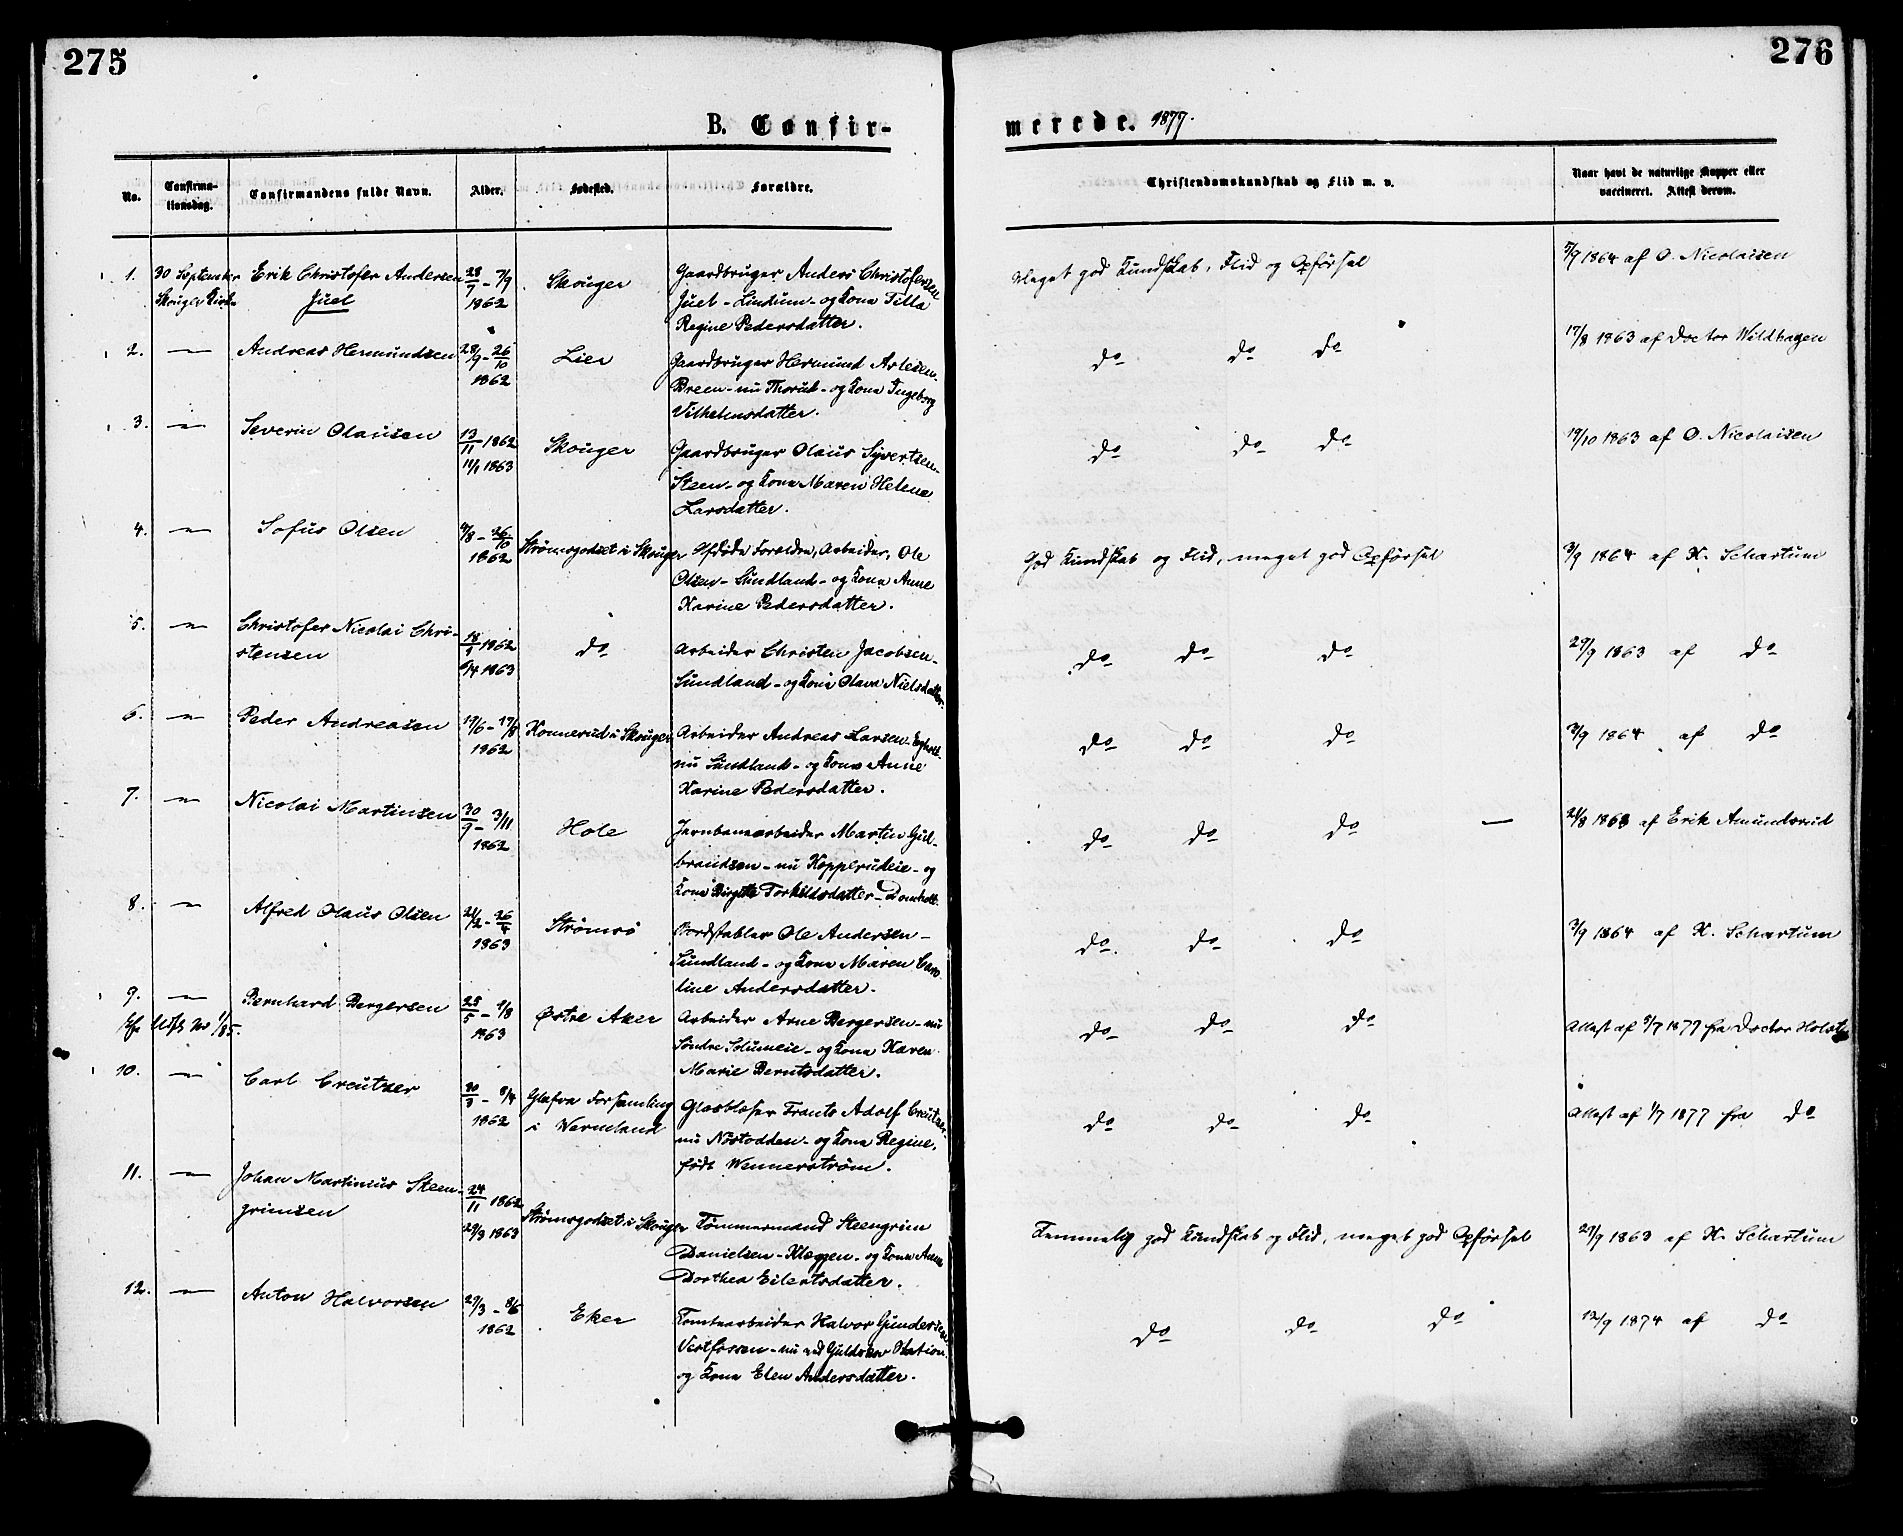 275
276
B. Confir-
merede. 1877.
No.
Confirma-
tionsdag.
Confirmandens fulde Navn.
Alder.
Fødested.
Forældre.
Christendomskundskab og Flid m. v.
Naar havt de naturlige Kopper eller
vaccineret. Attest derom.
1. 30 September Erik Christofer Andersen 28/7 - 7/9 Skouger Gaardbruger Anders Christofersen
Skouger Kirke Juel 1862 Juel - Lindum - og Kone Tilla
Regine Pedersdatter.
Meget god Kundskab, Flid og Opførsel 5/9 1864 af O. Nicolaisen
2. — Andreas Hermundsen 28/9 - 26/10 Lier Gaardbruger Hermund
1862 Breen - nu Thorud - og Kone Ingeborg
Vilhelmsdatter.
do do do 17/8 1863 af Doctor Wildhagen
3. — Severin Olausen 13/11 1862 Skouger Gaardbruger Olaus Syvertsen -
11/1 1863 Steen - og Kone Maren Helene
Larsdatter.
do do do 19/10 1863 af O. Nicolaisen
4. — Sofus Olsen 4/8 - 26/10 Strømsgodset i Skouger Afdøde Forældre, Arbeider, Ole
1862 Olsen - Sundland - og Kone Anne
Karine Pedersdatter.
God Kundskab og Flid, meget god Opførsel 3/9 1864 af K. Schartum
5. — Christofer Nicolai Chri-
stensen 1862 do Arbeider Christen Jacobsen -
6/4 1863 Sundland - og Kone Olava Nielsdatter.
do do do 29/9 1863 af do
6. — Peder Andreasen 19/6 - 17/8 Konnerud i Skouger Arbeider Andreas Larsen -
1862 nu Sundland - og Kone Anne
Karine Pedersdatter.
do do do 3/9 1864 af do
7. — Nicolai Martinsen 30/9 - 3/11 Hole Jernbanearbeider Martin Gul-
1862 brandsen - nu Kopperudeie - og
Kone Birgitte Torkildsdatter -
do do do — 24/8 1863 af Erik Amundsrud
8. — Alfred Olaus Olsen 21/2 - 26/4 Strømsø Bordstabler Ole Andersen -
1863 Sundland - og Kone Maren Caro-
line Andersdatter.
do do do 3/9 1864 af K. Schartum
9. — Bernhard Bergersen 25/5 - 1/8 Østre Aker Arbeider Arne Bergersen - nu
Udst. 1863 Søndre Solumeie - og Kone Karen
Marie Berntsdatter.
do do do Attest af 5/7 1877 fra Doctor Holst
10. — Carl Creutzer 30/3 - 8/4 Glafva Forsamling Glasblæser Frants Adolf Creutzer -
1862 i Wermland nu Nøstodden - og Kone Regine,
født Wennerström.
do do do Attest af 1/7 1877 fra do
11. — Johan Martinius Steen-
grimsen 24/11 1862 Strømsgodset i Skouger Tømmermand Steengrim
29/3 1863 Danielsen - Kleggen - og Kone Anne
Dorthea Eilertsdatter.
Temmelig god Kundskab og Flid, meget god Opførsel 29/9 1863 af K. Schartum
12. — Anton Halvorsen 27/3 - 8/6 Eker Tomtearbeider Halvor Gundersen
1862 Vestfossen - nu ved Guldskov Station
og Kone Elen Andersdatter.
do do do 12/9 1874 af do